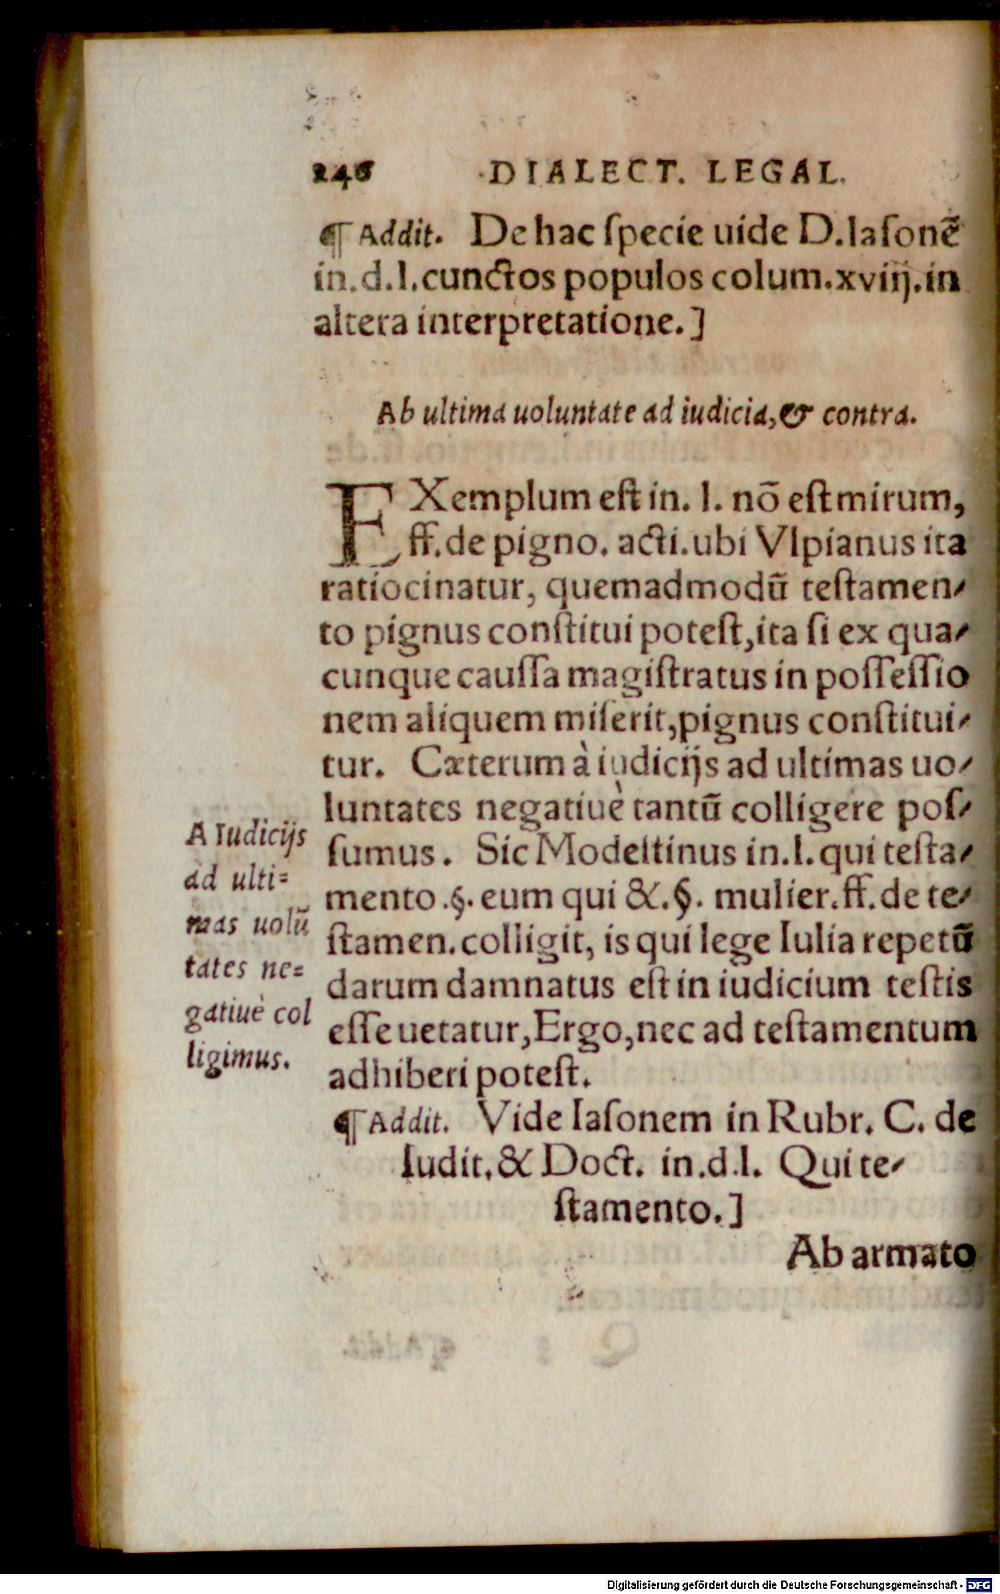 246 DIALECT. LEGAL.
¶ Addit. De hac ſpecie uide D. Iaſonẽ
in. d. l. cunctos populos colum. xviij. in
altera interpretatione.]
Ab ultima uoluntate ad iudicia, & contra.
EXemplum eſt in. l. nõ eſt mirum,
ff. de pigno. acti. ubi Vlpianus ita
ratiocinatur, quemadmodũ teſtamen⸗
to pignus conſtitui poteſt, ita ſi ex qua⸗
cunque cauſſa magiſtratus in poſſeſſio
nem aliquem miſerit, pignus conſtitui⸗
tur. Cæterum à iudicijs ad ultimas uo⸗
luntates negatiuè tantũ colligere poſ⸗
ſumus. Sic Modeſtinus in. l. qui teſta⸗
mento .§. eum qui &.§. mulier. ff. de te⸗
ſtamen. colligit, is qui lege Iulia repetũ
darum damnatus eſt in iudicium teſtis
eſſe uetatur, Ergo, nec ad teſtamentum
adhiberi poteſt.
A Iudicijs
ad ulti⸗
mas uolũ
tates ne⸗
gatiuè col
ligimus.
¶ Addit. Vide Iaſonem in Rubr. C. de
Iudit. & Doct. in. d. l. Qui te⸗
ſtamento.]
Ab armato
Digitalisierung gefördert durch die Deutsche Forschungsgemeinschaft - DFG